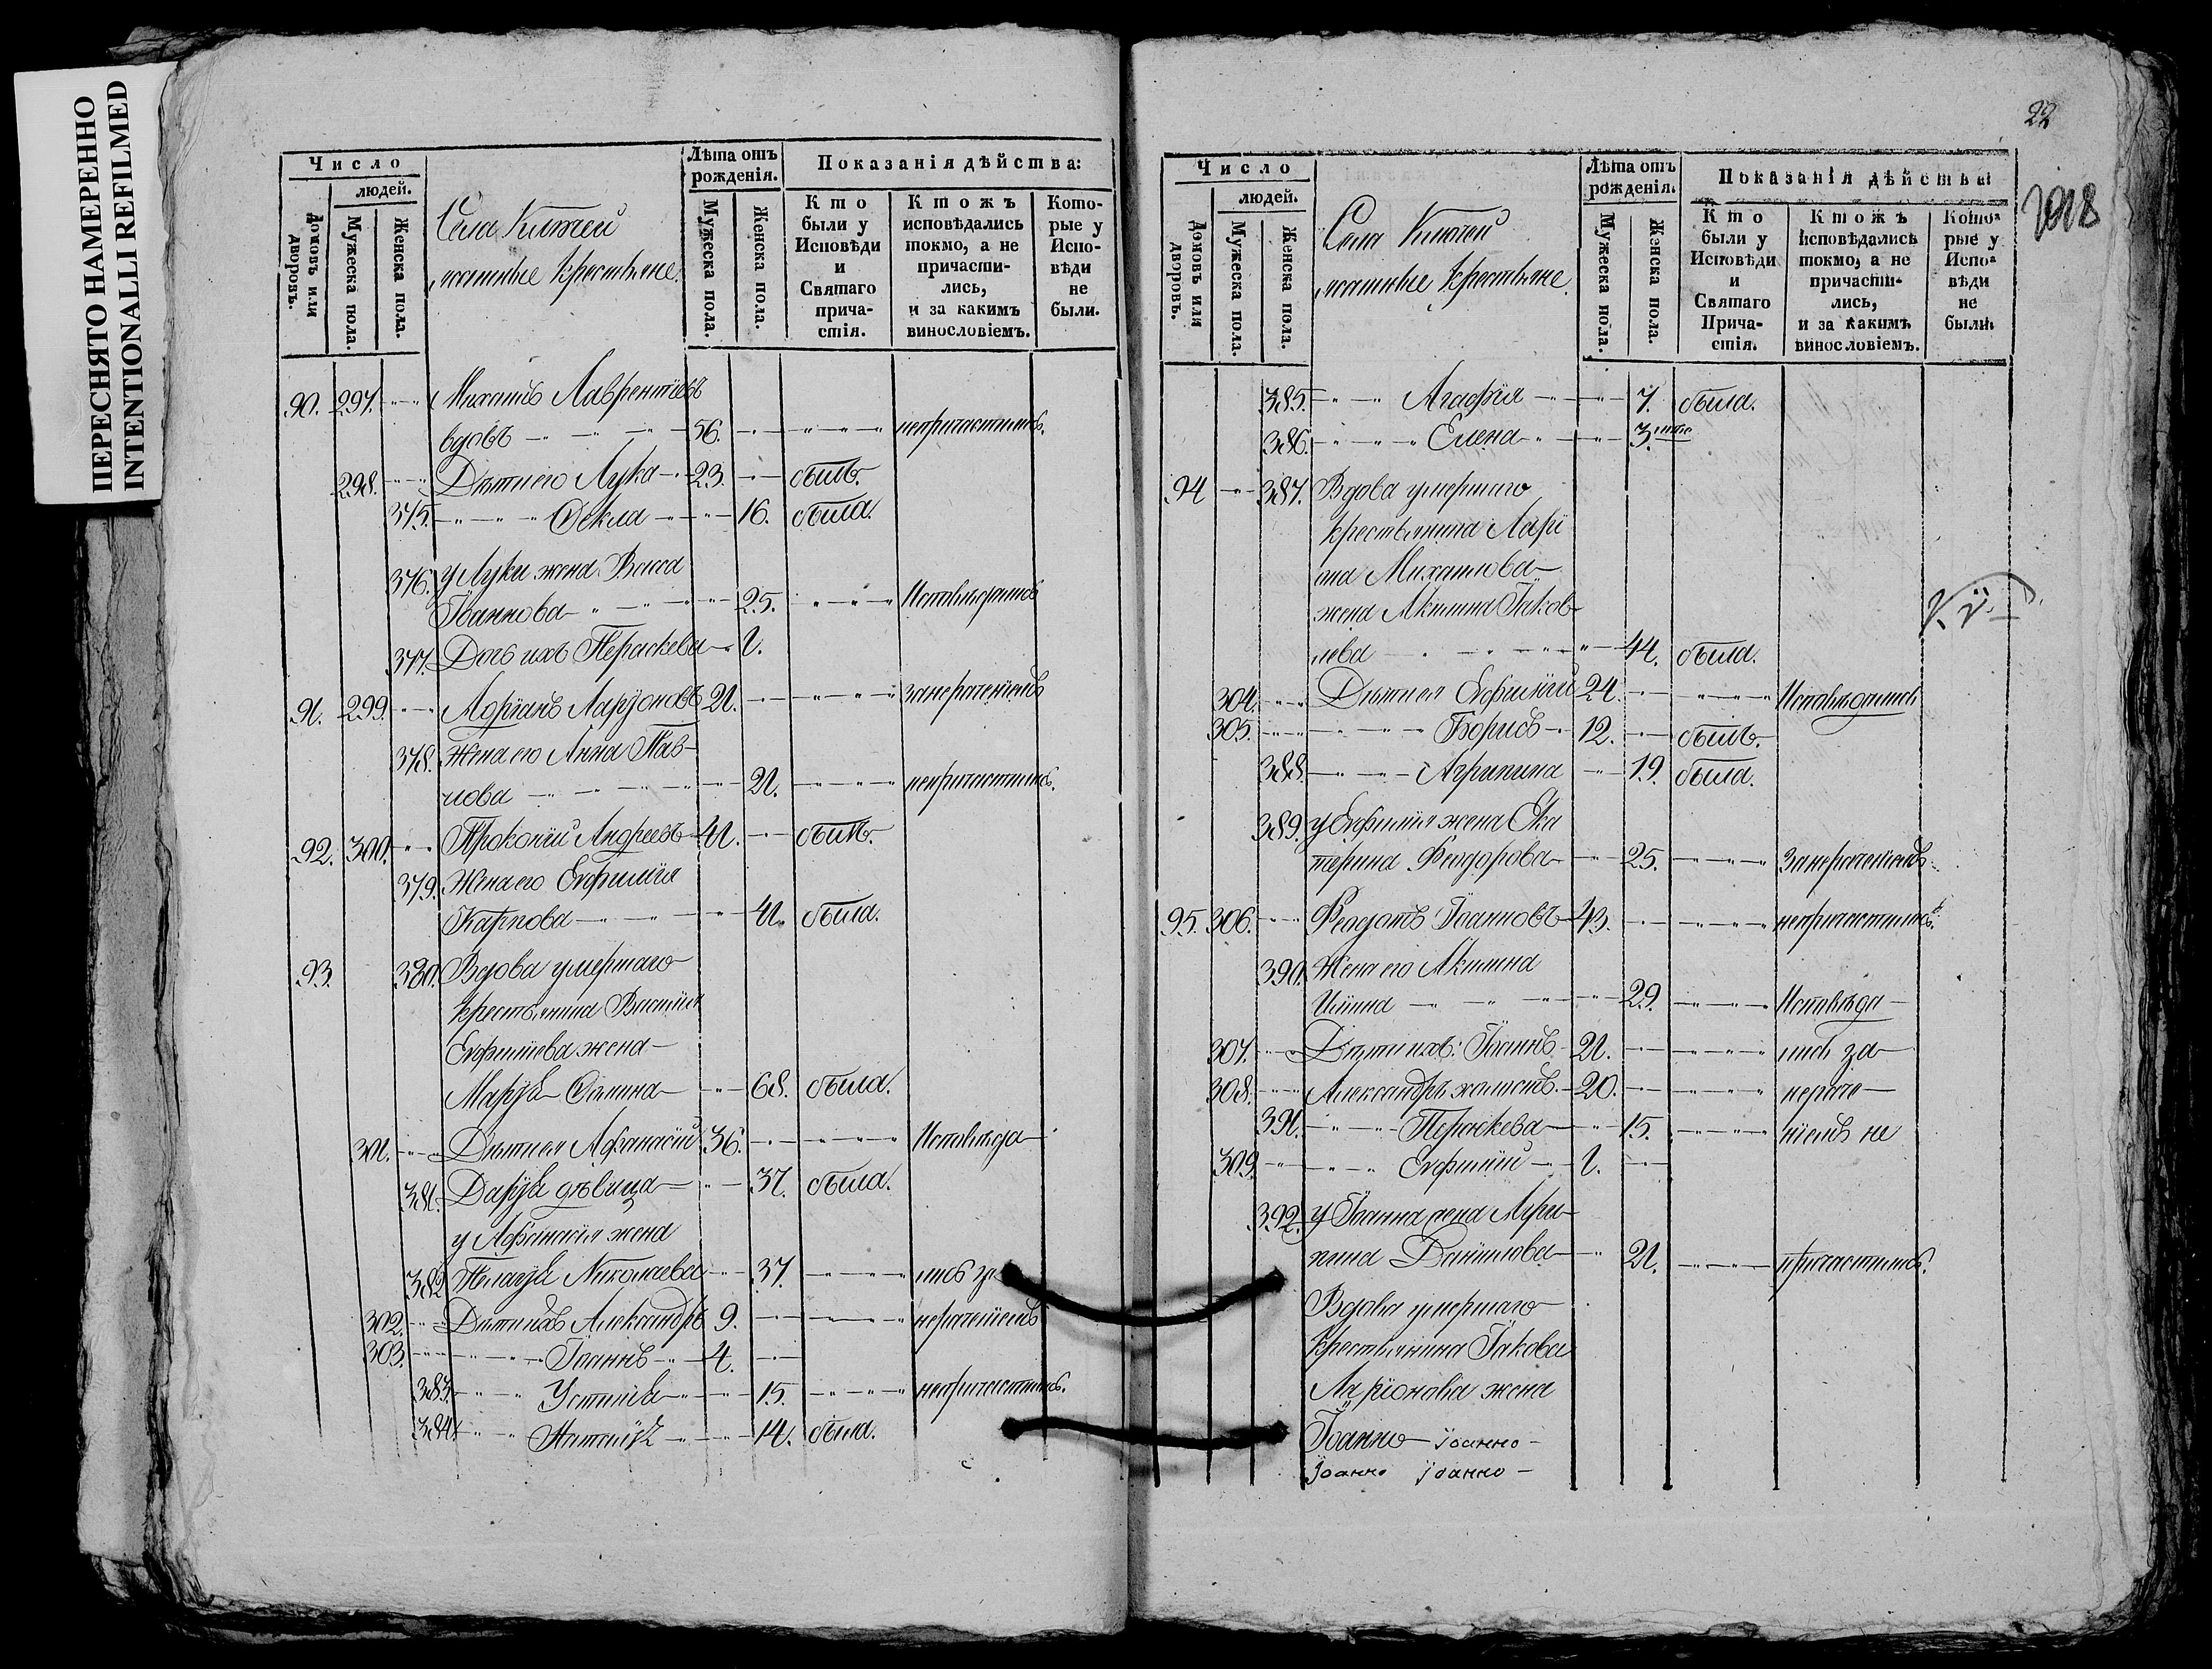 ПЕРЕСНЯТО НАМЕРЕННО
INTENTIONALLI REFILMED
Число
людей.
Домовъ или дворовъ.
Мужеска пола.
Женска пола.
Села
крестьяне.
Лѣта отъ рожденія.
Мужеска пола.
Женска пола.
Показанія дѣйства:
Кто были у Исповѣди и Святаго прича- стія.
Ктожъ исповѣдались токмо, а не причасти- лись, и за какимъ винословіемъ.
Кото- рые у Испо- вѣди не были.
90. 297. Михаилъ Лаврентіевъ
вдовъ 56. непричастились.
298. Дѣти его Лука 23. былъ.
375. Ѳекла 16. была.
376. у Луки жена Васса
Іоаннова 25. Исповѣдались
377. Дочь ихъ Пераскева 1.
91. 299. Ларіоновъ 21. занераченіемъ
378. Жена его Анна Пав-
лова 21. непричастились.
92. 300. Прокопій Андреевъ 41. былъ.
379. Жена его Евфимія
Карпова 41. была.
93. 380. Вдова умершаго
крестьянина Василія
Евфиміева жена
Марѳа Ѳомина 68. была.
301. Дѣти ея Аѳанасій 36. Исповѣда-
381. Дарія дѣвица 37. была.
у Аѳанасія жена
382. Пелагія Николаева 37. лись за
302. Дѣти ихъ Александръ 9. нераченіемъ
303. Іоаннъ 4.
383. Устинія 15. непричастились.
384. Наталія 14. была.
22
2018
Число
людей.
Домовъ или дворовъ.
Мужеска пола.
Женска пола.
Села
крестьяне.
Лѣта отъ рожденія.
Мужеска пола.
Женска пола.
Показанія дѣйства
Кто были у Исповѣди и Святаго Прича- стія.
Ктожъ исповѣдались токмо, а не причасти- лись, и за какимъ винословіемъ.
Кото- рые у Испо- вѣди не были.
385. Агафія 7. была.
386. Елена 3.
94 387. Вдова умершаго
крестьянина Ларі
она Михаилова
жена Акилина Іаков
лева 44. была.
304. Дѣти ея Евфимій 24. Исповѣдались
305. Борисъ 12. былъ.
388. Агрипина 19. была.
389. у Евфимія жена Ека
терина Феодорова 25. Занераченіемъ
95. 306. Феодотъ Іоанновъ 43. непричастились.
390. Жена его Акилина
Ильина 29. Исповѣда-
307. Дѣти ихъ: Іоаннъ 21. лись за
308. Александръ холостъ. 20. нераче-
391. Пераскева 15. ніемъ не
309. Евфимій 1.
392. у Іоанна жена Мари-
Даніилова 21. причастились.
Вдова умершаго
крестьянина Іакова
Ларіонова жена
Іоанно іоанно-
іоанно іоанно-